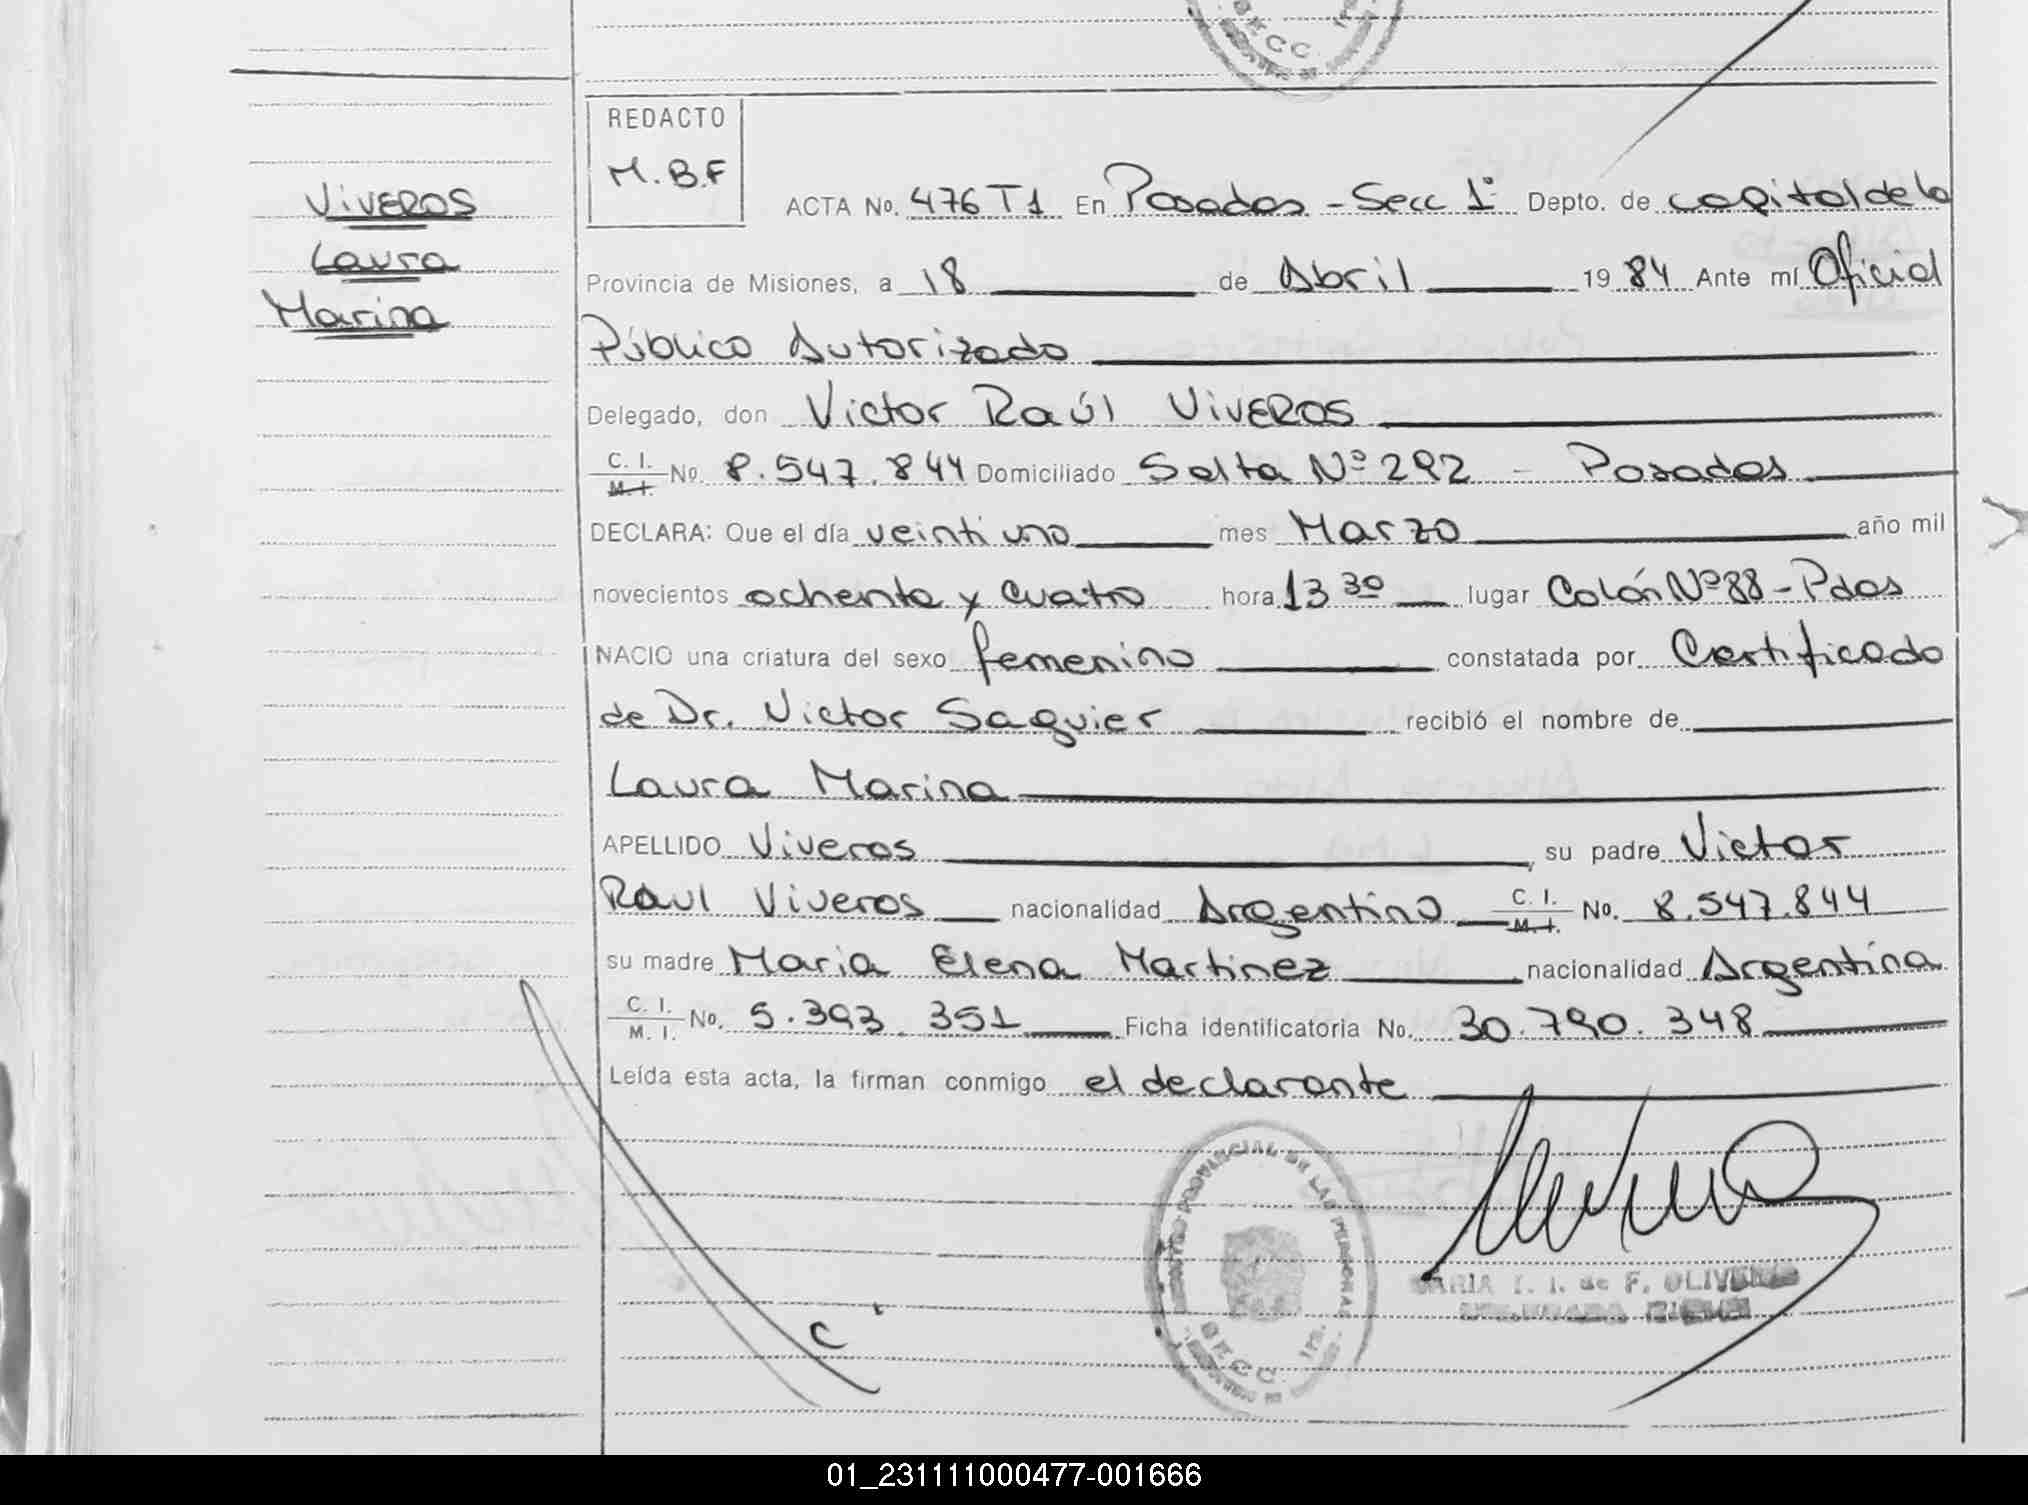 SECC. 1ra.
VIVEROS
Laura
Marina
REDACTO
M.B.F
ACTA No. 476 T1 En Posadas - Secc 1° Depto. de capital de la
Provincia de Misiones, a 18 de Abril 1984 Ante mí Oficial
Público Autorizado
Delegado, don Victor Raúl VIVEROS
C. I. M. I. No. 8.547.844 Domiciliado Salta Nº 292 - Posadas
DECLARA: Que el día veintiuno mes Marzo año mil
novecientos ochenta y cuatro hora 13 30 lugar Colón Nº 88 - Pdas
NACIO una criatura del sexo femenino constatada por Certificado
de Dr. Victor Saguier recibió el nombre de
Laura Marina
APELLIDO Viveros, su padre Victor
Raul Viveros nacionalidad Argentino C. I. M. I. No. 8.547.844
su madre Maria Elena Martinez nacionalidad Argentina
C. I. M. I. No. 5.393.351 Ficha identificatoria No. 30.790.348
Leída esta acta, la firman conmigo el declarante
PROVINCIAL DE LAS PERSONAS
SECC. 1ra.
MARIA I. I. de F. OLIVERA
01_231111000477-001666